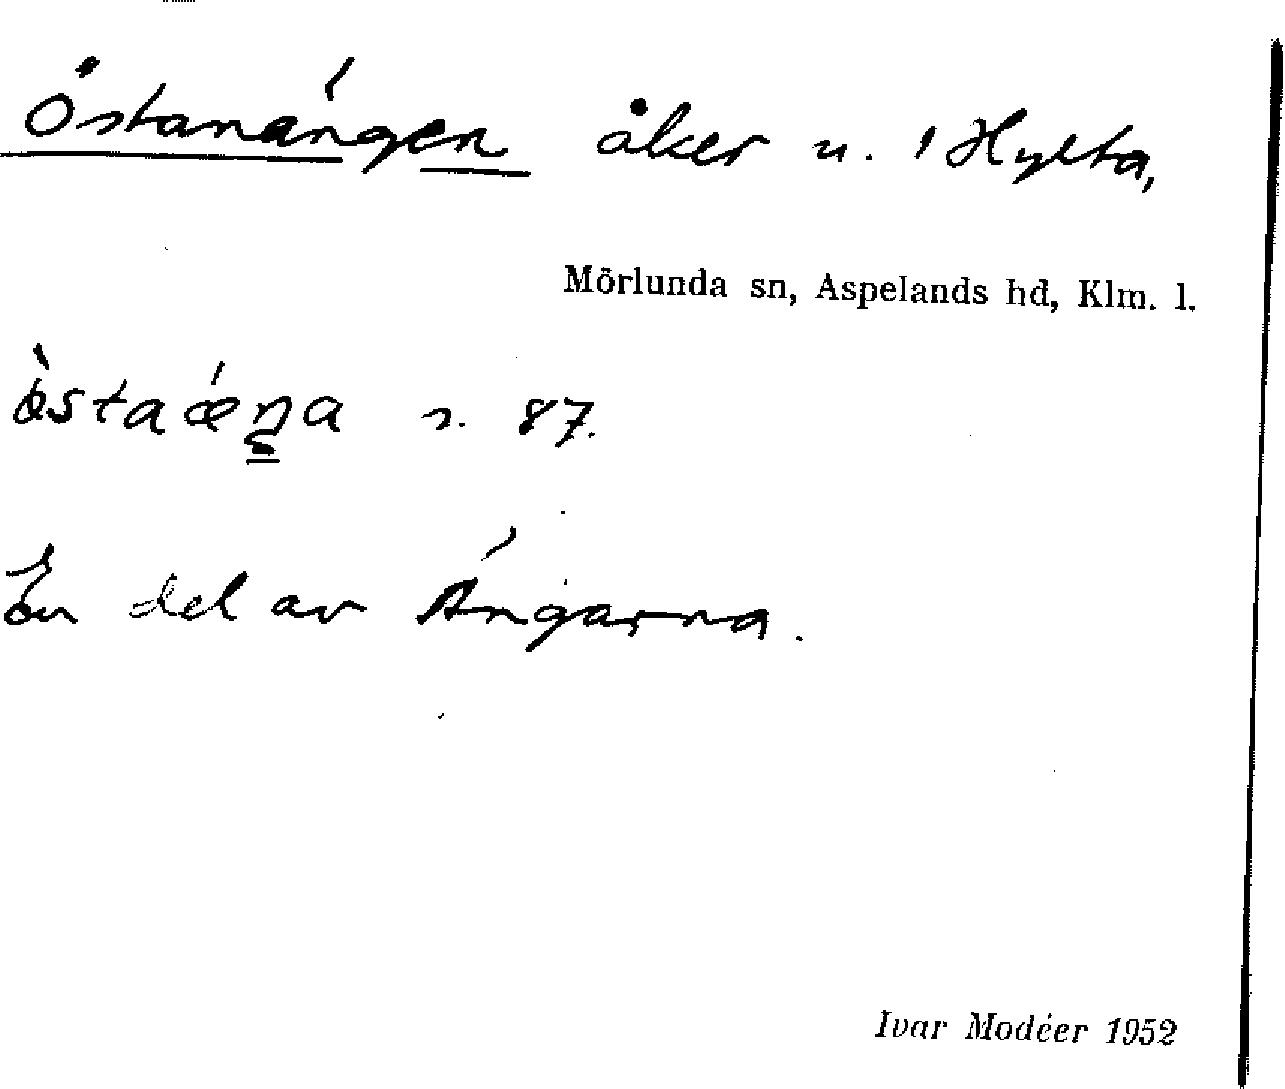 Östanängen åker u. 1 Hylta,
Mörlunda sn, Aspelands hd, Klm. l.
s. 87.
En del av Ängarna.
Ivar Modéer 1952